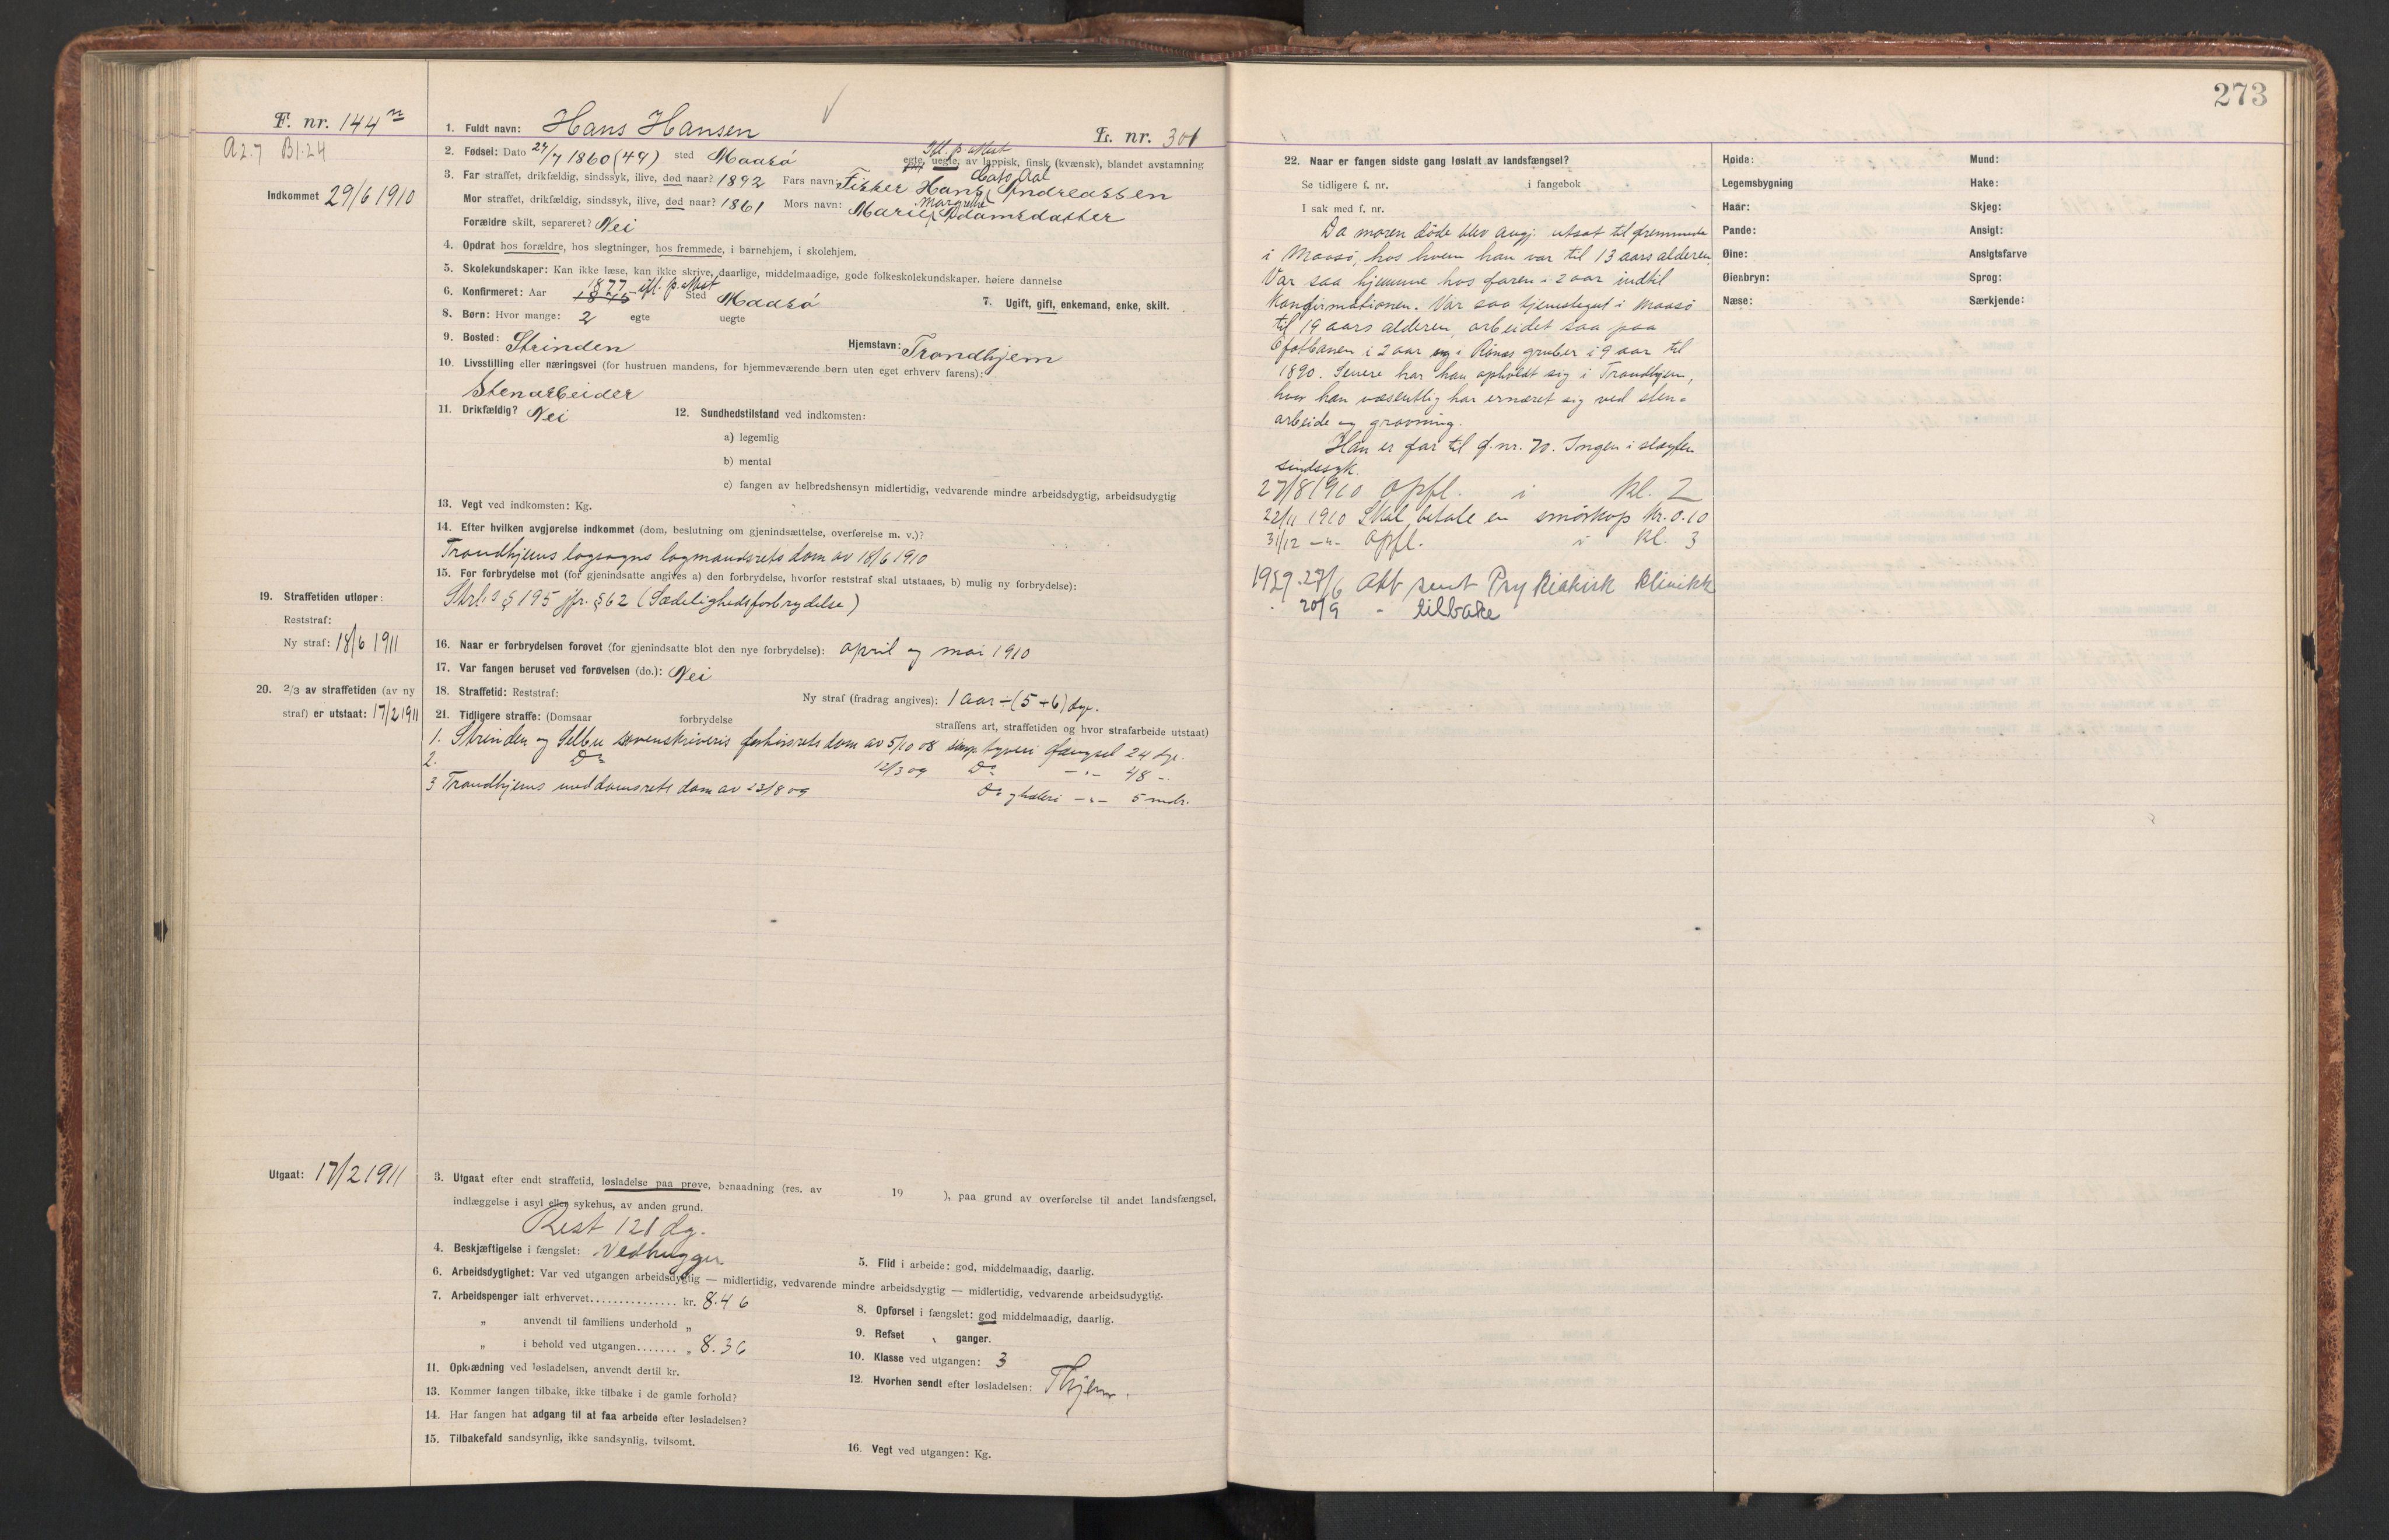 273
F. nr. 144
A 2.7 B1.24
Indkommet 29/6 1910
1. Fuldt navn: Hans Hansen
L. nr. 301
2. Fødsel: Dato 24/7 1860 (49) sted Maasö
Ifl. p. attest
egte, uegte, av lappisk, finsk (kvænsk), blandet avstamning
3. Far straffet, drikfældig, sindssyk, ilive, død naar? 1892 Fars navn: Fisker Hans Andreassen
Mor straffet, drikfældig, sindssyk, ilive, død naar? 1861 Mors navn: Marie Margrethe Adamsdatter
Forældre skilt, separeret? Nei
4. Opdrat hos forældre, hos slegtninger, hos fremmede, i barnehjem, i skolehjem.
5. Skolekundskaper: Kan ikke læse, kan ikke skrive, daarlige, middelmaadige, gode folkeskolekundskaper. høiere dannelse
1877 ifl. p. attest
6. Konfirmeret: Aar 1875 Sted Maasö
7. Ugift, gift, enkemand, enke, skilt.
8. Børn: Hvor mange: 2 egte uegte
9. Bosted: Strinden
Hjemstavn: Trondhjem
10. Livsstilling eller næringsvei (for hustruen mandens, for hjemmeværende børn uten eget erhverv farens):
Stenarbeider
11. Drikfældig? Nei
12. Sundhedstilstand ved indkomsten:
a) legemlig
b) mental
c) fangen av helbredshensyn midlertidig, vedvarende mindre arbeidsdygtig, arbeidsudygtig
13. Vegt ved indkomsten: Kg.
14. Efter hvilken avgjørelse indkommet (dom, beslutning om gjenindsættelse, overførelse m. v.)?
Trondhjems lagsogns lagmandsrets dom av 18/6 1910
15. For forbrydelse mot (for gjenindsatte angives a) den forbrydelse, hvorfor reststraf skal utstaaes, b) mulig ny forbrydelse):
Strl.s § 195 jfr. § 62 (Sædelighedsforbrydelse)
16. Naar er forbrydelsen forøvet (for gjenindsatte blot den nye forbrydelse): april og mai 1910
17. Var fangen beruset ved forøvelsen (do.): Nei
18. Straffetid: Reststraf:
Ny straf (fradrag angives): 1 aar ÷ (5 + 6) dge.
19. Straffetiden utløper:
Reststraf:
Ny straf: 18/6 1911
20. 2/3 av straffetiden (av ny
straf) er utstaat: 17/2 1911
21. Tidligere straffe: (Domsaar forbrydelse straffens art, straffetiden og hvor strafarbeide utstaat)
1. Strinden og Selbu sorenskriveris forhørsrets dom av 5/10 08 simp. tyveri fængsel 24 dge.
2. Do 12/3 09 Do — " — 48 -
3 Trondhjems meddomsrets dom av 23/8 09 Do og hæleri — " — 5 mdr.
Utgaat: 17/2 1911
3. Utgaat efter endt straffetid, løsladelse paa prøve, benaadning (res. av 19 ), paa grund av overførelse til andet landsfængsel.
indlæggelse i asyl eller sykehus, av anden grund.
Rest 121 dg.
4. Beskjæftigelse i fængslet: Vedhugger
5. Flid i arbeide: god, middelmaadig, daarlig.
6. Arbeidsdygtighet: Var ved utgangen arbeidsdygtig — midlertidig, vedvarende mindre arbeidsdygtig — midlertidig, vedvarende arbeidsudygtig.
7. Arbeidspenger ialt erhvervet............... kr. 8.46
„ anvendt til familiens underhold „
„ i behold ved utgangen....... „ 8.36
8. Opførsel i fængslet: god middelmaadig, daarlig.
9. Refset ganger.
10. Klasse ved utgangen: 3
11. Opklædning ved løsladelsen, anvendt dertil kr.
12. Hvorhen sendt efter løsladelsen: Thjem.
13. Kommer fangen tilbake, ikke tilbake i de gamle forhold?
14. Har fangen hat adgang til at faa arbeide efter løsladelsen?
15. Tilbakefald sandsynlig, ikke sandsynlig, tvilsomt.
16. Vegt ved utgangen: Kg.
22. Naar er fangen sidste gang løslatt av landsfængsel?
Se tidligere f. nr. i fangebok
I sak med f. nr.
Da moren döde blev angj. utsat til fremmede
i Maasö, hos hvem han var til 13 aars alderen.
Var saa hjemme hos faren i 2 aar indtil
konfirmationen. Var saa tjenestegut i Maasö
til 19 aars alderen, arbeidet saa paa
Ofotbanen i 2 aar og i Rönas gruber i 9 aar til
1890. Senere har han opholdt sig i Trondhjem,
hvor han væsentlig har ernæret sig ved sten-
arbeide og gravning.
Han er far til f. nr. 70. Ingen i slegten
sindssyk.
27/8 1910 opfl. i kl. 2
22/11 1910 Skal betale en smörkop Kr. 0.10
31/12 — " — opfl. i kl. 3
1929 27/6 Akt sent Psykiatrisk klinikk
20/9 - tilbake
Høide:
Legemsbygning
Haar:
Pande:
Øine:
Øienbryn:
Næse:
Mund:
Hake:
Skjeg:
Ansigt:
Ansigtsfarve
Sprog:
Særkjende: